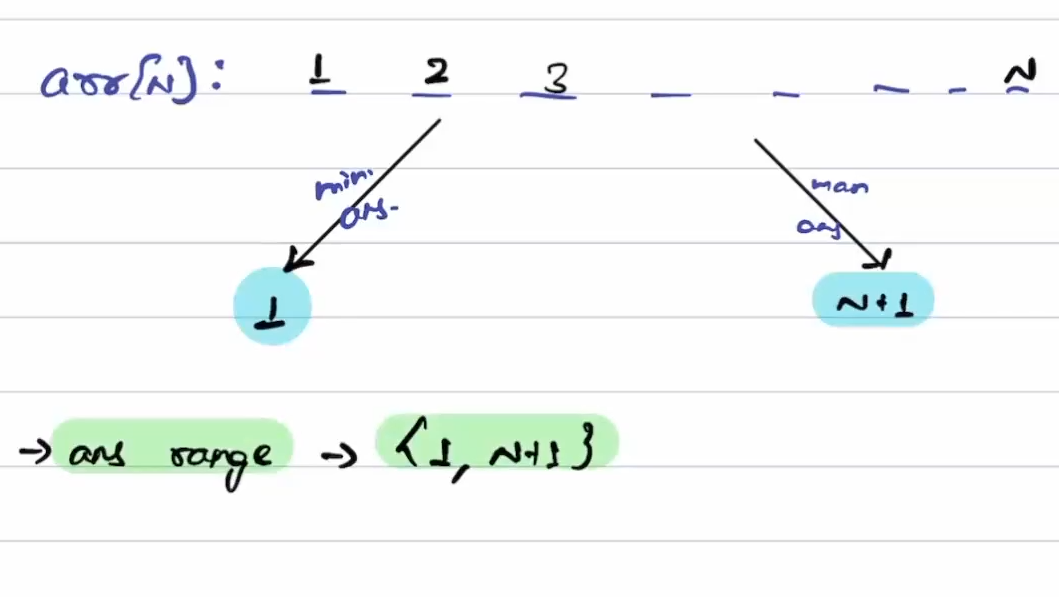 arr[N]: 1 2 3 N
min. max
ans. ans
1 N+1
→ ans range → {1, N+1}